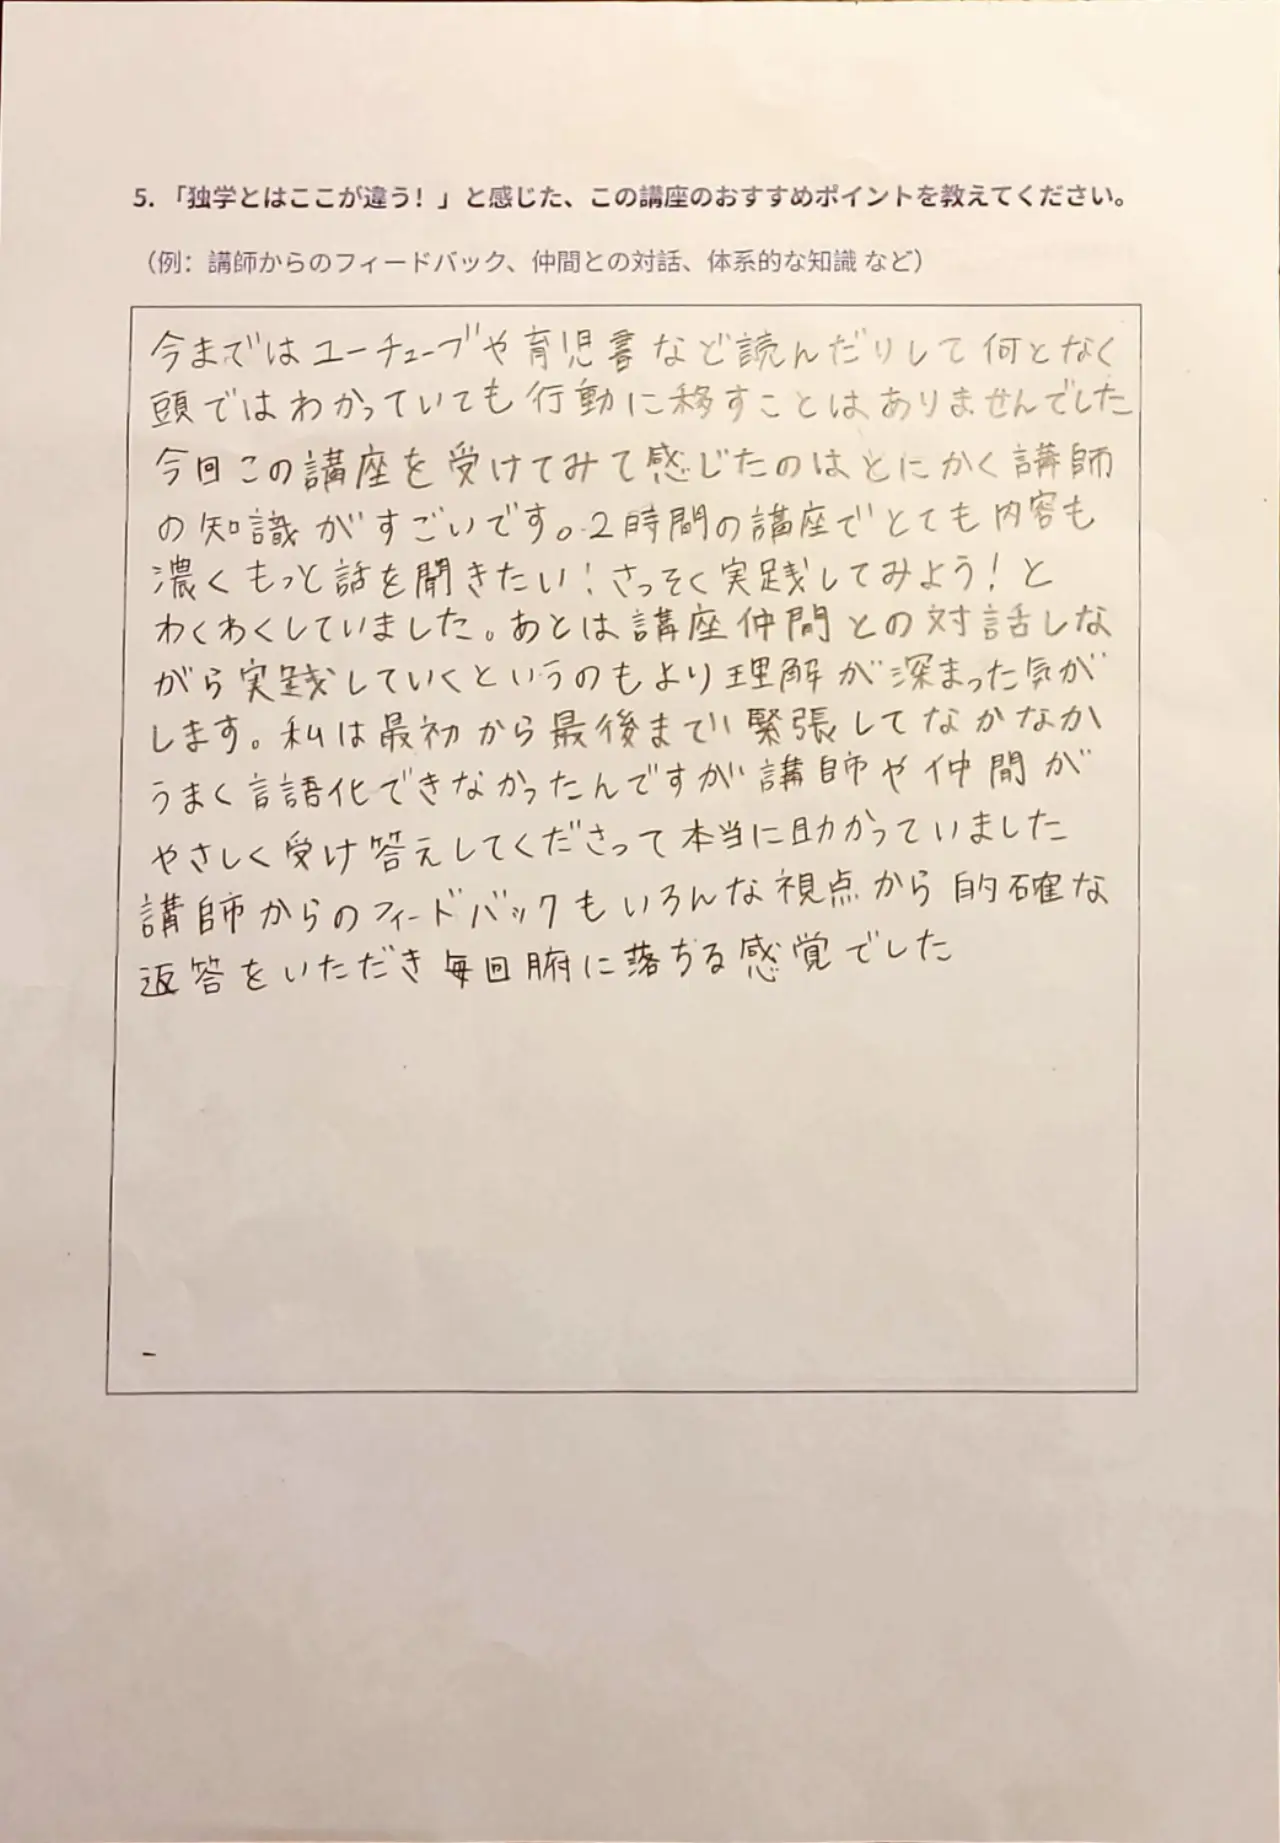 5. 「独学とはここが違う！」と感じた、この講座のおすすめポイントを教えてください。
（例：講師からのフィードバック、仲間との対話、体系的な知識 など）
今まではユーチューブや育児書など読んだりして何となく
頭ではわかっていても行動に移すことはありませんでした
今回この講座を受けてみて感じたのはとにかく講師
の知識がすごいです。2時間の講座でとても内容も
濃くもっと話を聞きたい！さっそく実践してみよう！と
わくわくしていました。あとは講座仲間との対話しな
がら実践していくというのもより理解が深まった気が
します。私は最初から最後まで緊張してなかなか
うまく言語化できなかったんですが講師や仲間が
やさしく受け答えしてくださって本当に助かっていました
講師からのフィードバックもいろんな視点から的確な
返答をいただき毎回腑に落ちる感覚でした